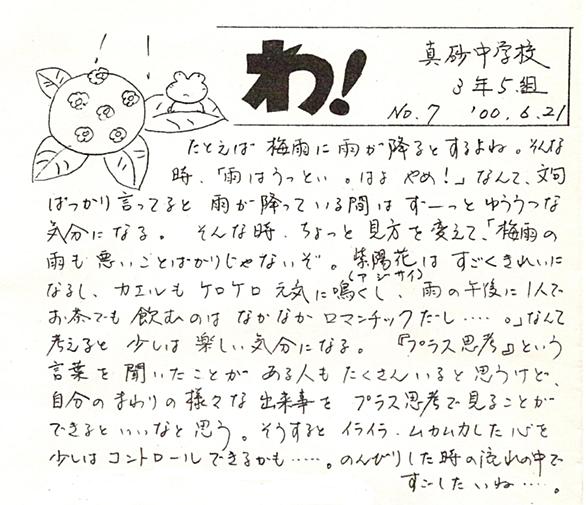 わ!
真砂中学校
3年5組
No.7 '00.6.21
たとえば 梅雨に 雨が 降るとするよね。そんな
時、「雨はうっとい。はよ やめ!」なんて、文句
ばっかり言ってると 雨が 降っている間は ずーっと ゆううつな
気分になる。 そんな時、ちょっと 見方を 変えて、「梅雨の
雨も 悪いことばかりじゃないぞ。紫陽花は すごくきれいに
(アジサイ)
なるし、カエルも ケロケロ 元気に鳴くし、雨の午後に1人で
お茶でも 飲むのは なかなか ロマンチックだし‥‥。」なんて
考えると 少しは 楽しい気分になる。 『プラス思考』という
言葉を 聞いたことが ある人も たくさんいると 思うけど、
自分の まわりの 様々な 出来事を プラス思考で 見ることが
できると いいなと 思う。そうすると イライラ・ムカムカした 心を
少しは コントロール できるかも‥‥‥。のんびりした 時の流れの中で
すごしたいね‥‥。